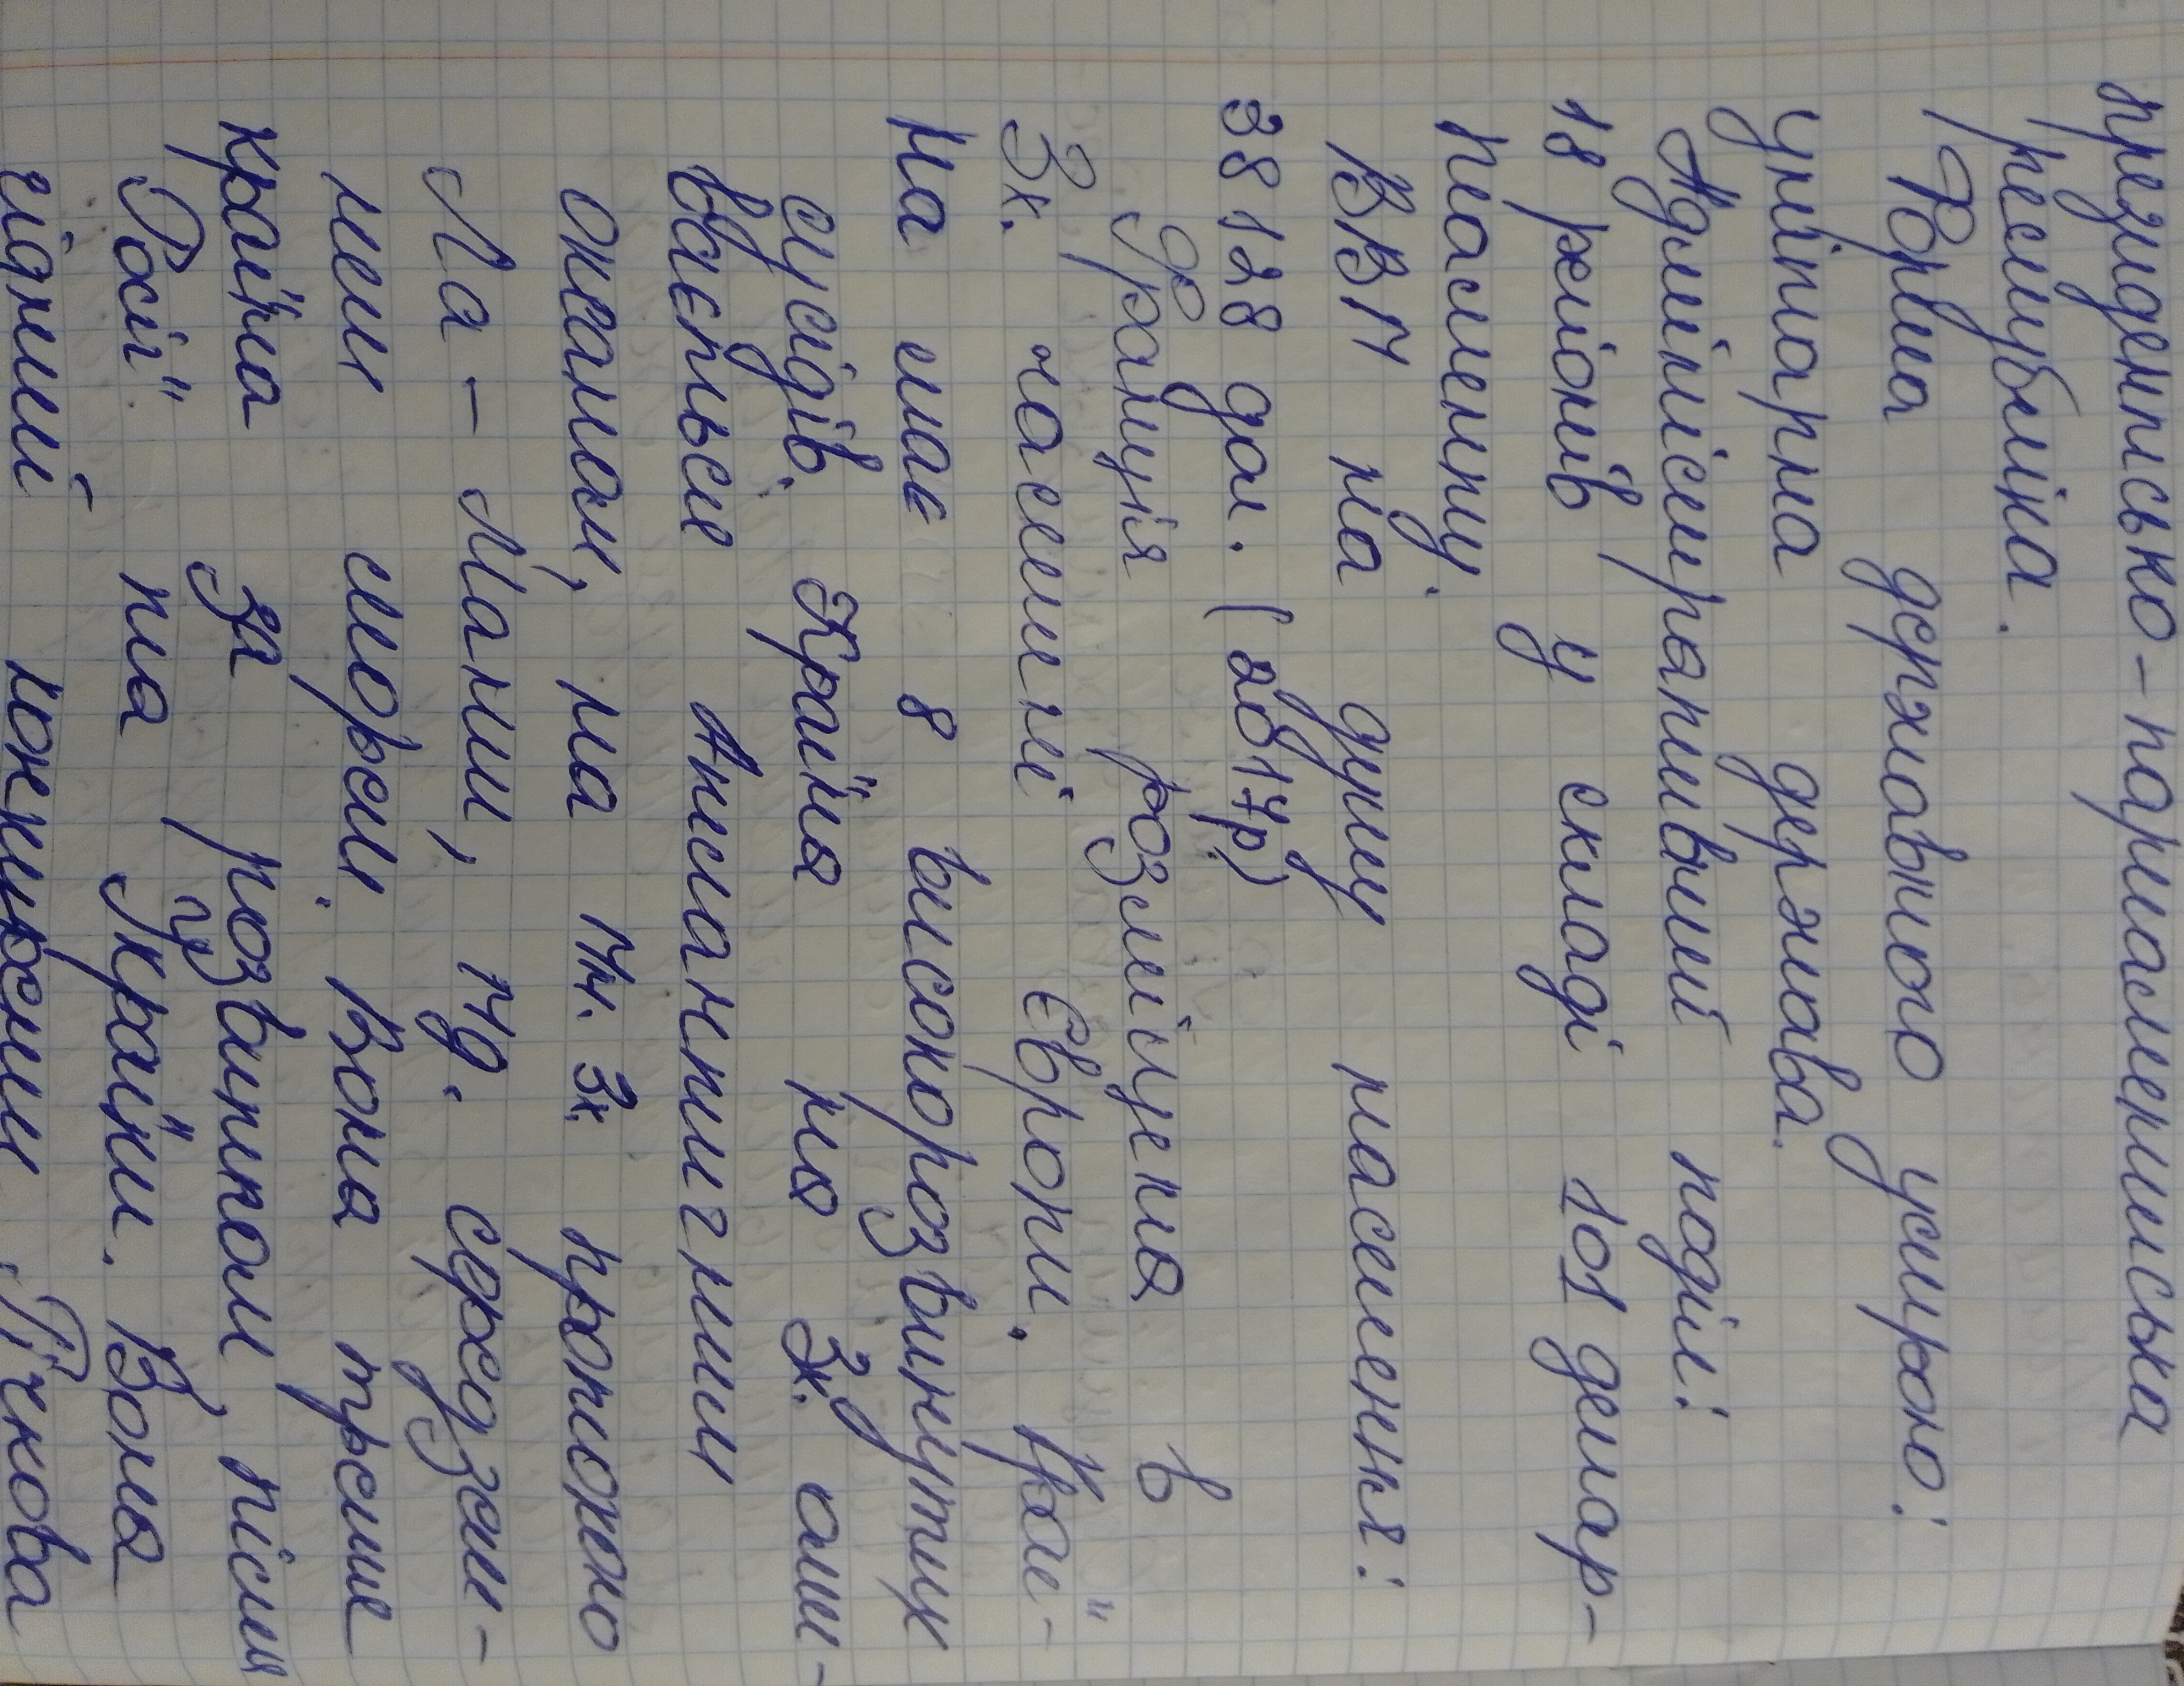 президентсько-парламентська
республіка.
Форма державного устрою:
унітарна держава.
Адміністративний поділ:
18 регіонів у складі 101 депар-
таменту.
ВВП на душу населення:
38 128 дол. (2017р)
Франція розміщена в
Зх. частині Європи. Кра-
їна має 8 високорозвинутих
сусідів. Країна на Зх. оми-
вається Атлантичним
океаном, на Пн. Зх. протокою
Ла-Манш, Пд. середзем-
ним морем. Вона третя
країна за розвитком, після
Росії та України. Вона
Річкова